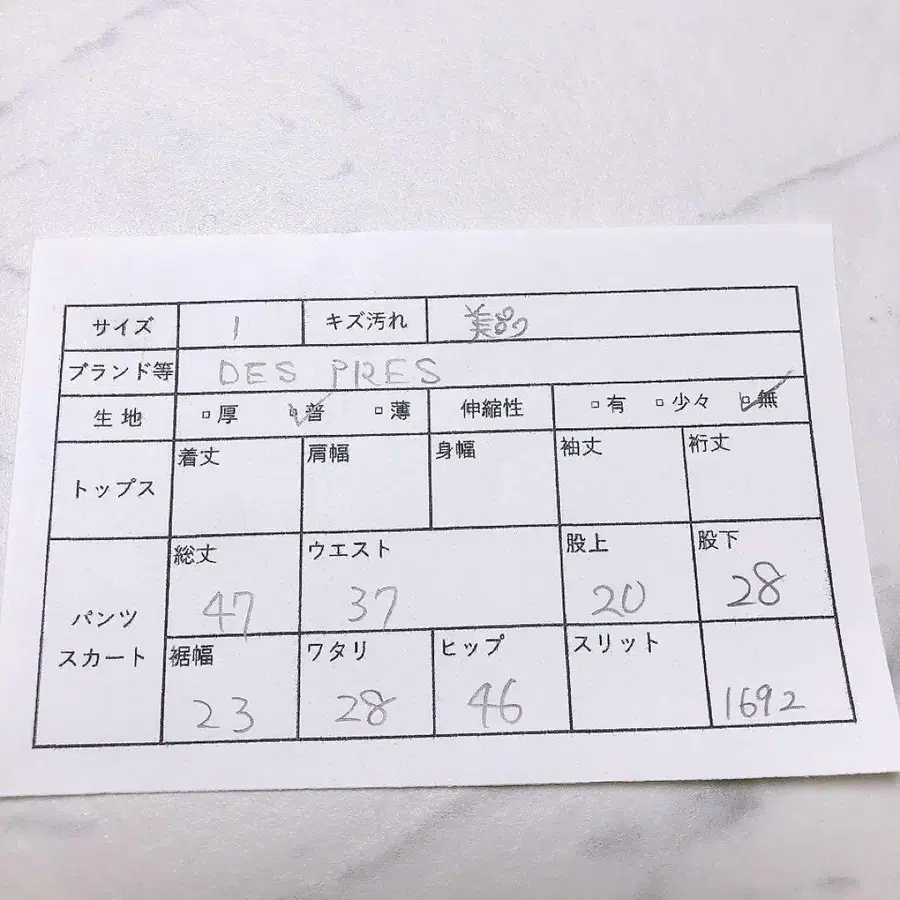 サイズ 1 キズ汚れ 美品
ブランド等 DES PRES
生地 □厚 □普 □薄 伸縮性 □有 □少々 □無
トップス 着丈 肩幅 身幅 袖丈 裄丈
パンツ スカート
総丈 47 ウエスト 37 股上 20 股下 28
裾幅 23 ワタリ 28 ヒップ 46 スリット 1692